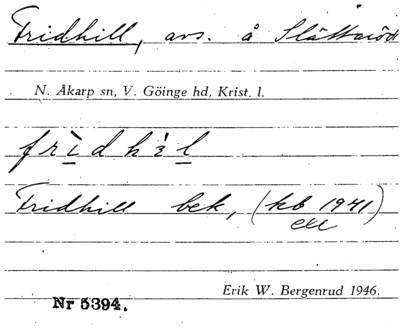 Fridhill, avs. å Slättaröd
N. Åkarp sn, V. Göinge hd, Krist. l.
frìdhìl
Fridhill bek, (kb 1941)
Erik W. Bergenrud 1946.
Nr 5394.